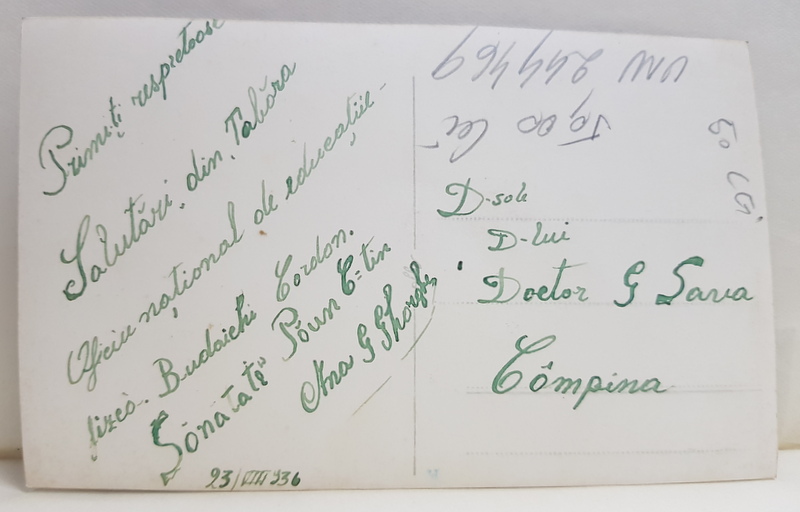 Primiți respectoase
Salutări din Tabăra
Oficiu național de educație-
fizcă. Budachi Cordon.
Sănătate Păun C-tin
Ana G Ghorghe
23/VIII 936
VM 244469
5000 lei
50 LEI
D-sale
D-lui
Doctor G Sava
Cômpina